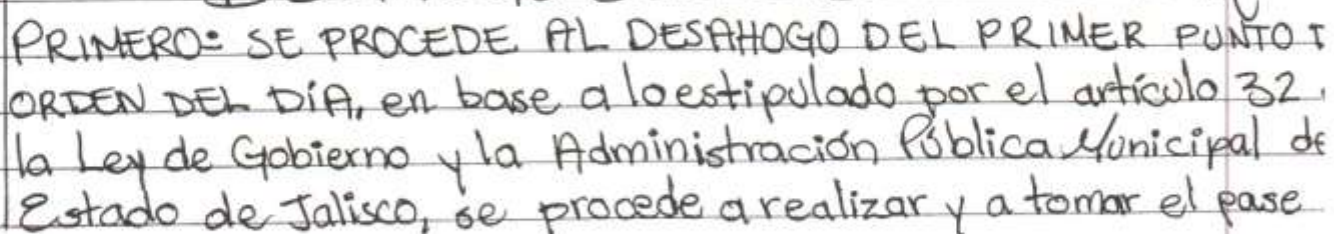 PRIMERO: SE PROCEDE AL DESAHOGO DEL PRIMER PUNTO
ORDEN DEL DÍA, en base a lo estipulado por el artículo 32
la Ley de Gobierno y la Administración Pública Municipal de
Estado de Jalisco, se procede a realizar y a tomar el pase